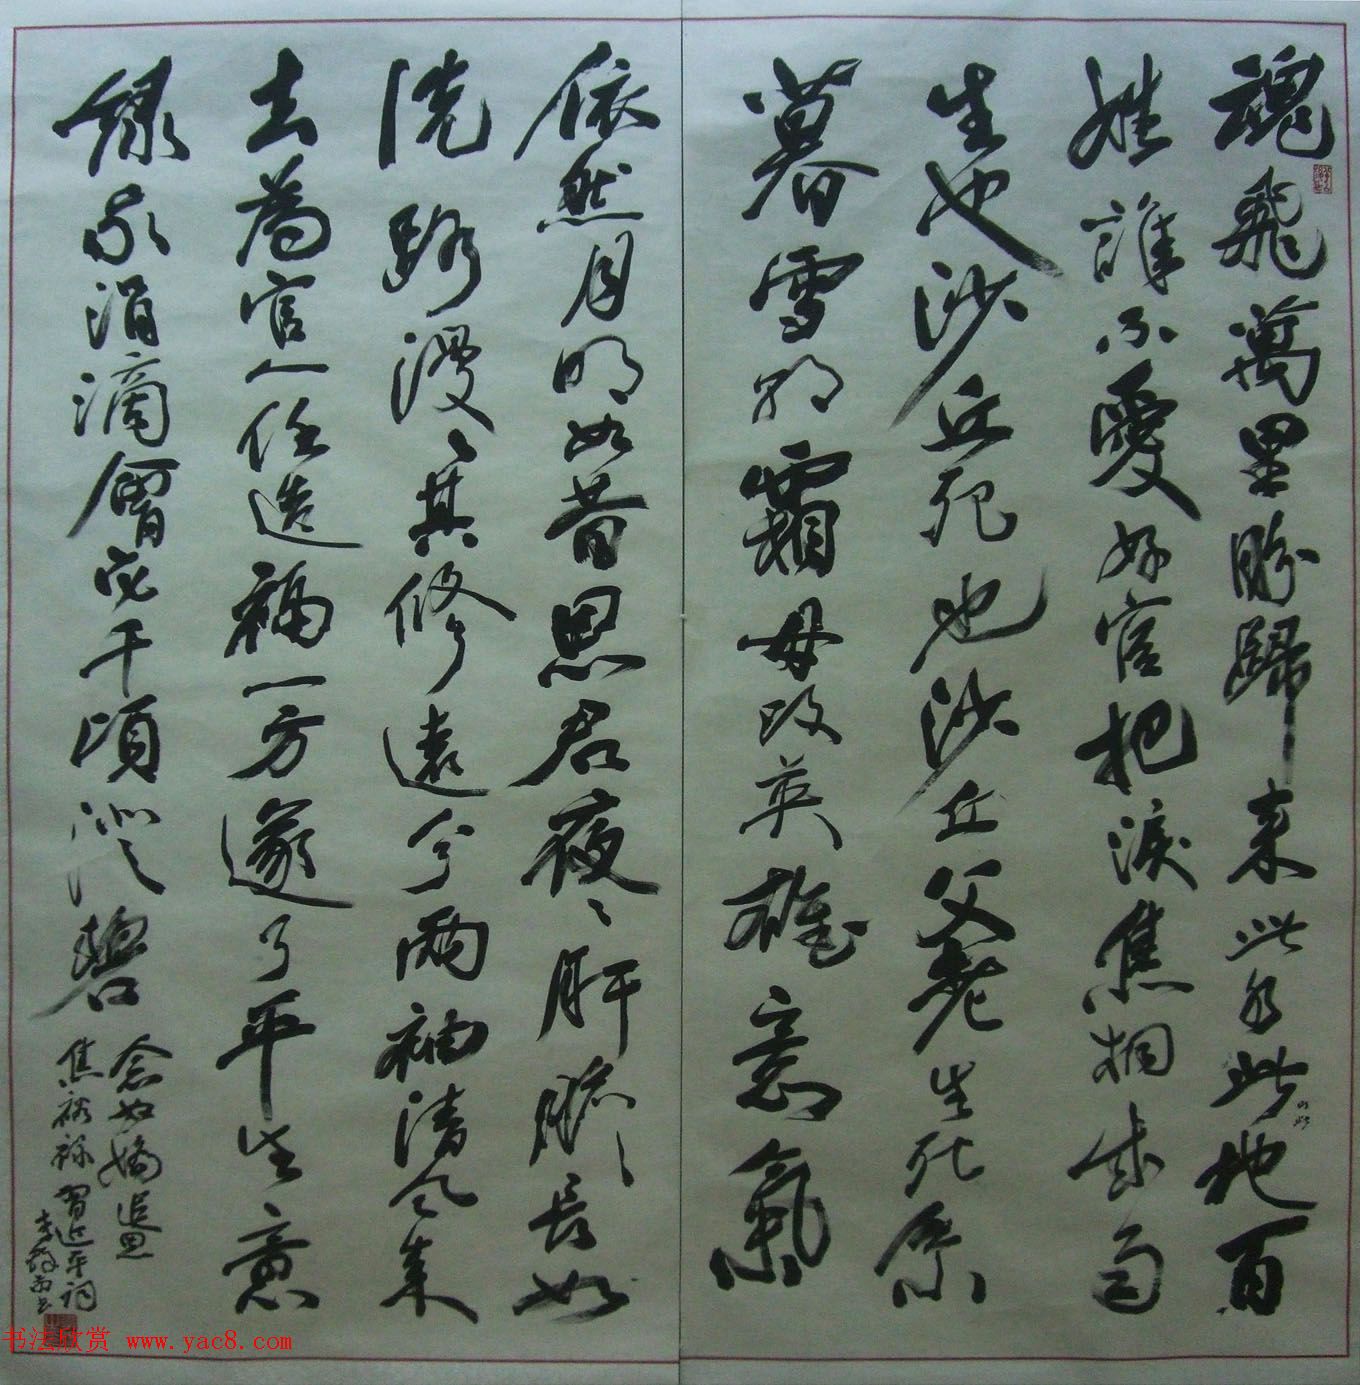 魂飛萬里盼歸来此水此地百
山此
姓誰不愛好官把淚焦桐成雨
生也沙丘死也沙丘父老生死系
暮雪朝霜毋改英雄意氣
依然月明如昔思君夜〻肝膽長如
洗路漫〻其修遠兮兩袖清風来
去為官一任造福一方遂了平生意
綠我涓滴會它千頃澄碧
念奴嬌追思
焦裕祿習近平詞
书法欣赏 www.yac8.com